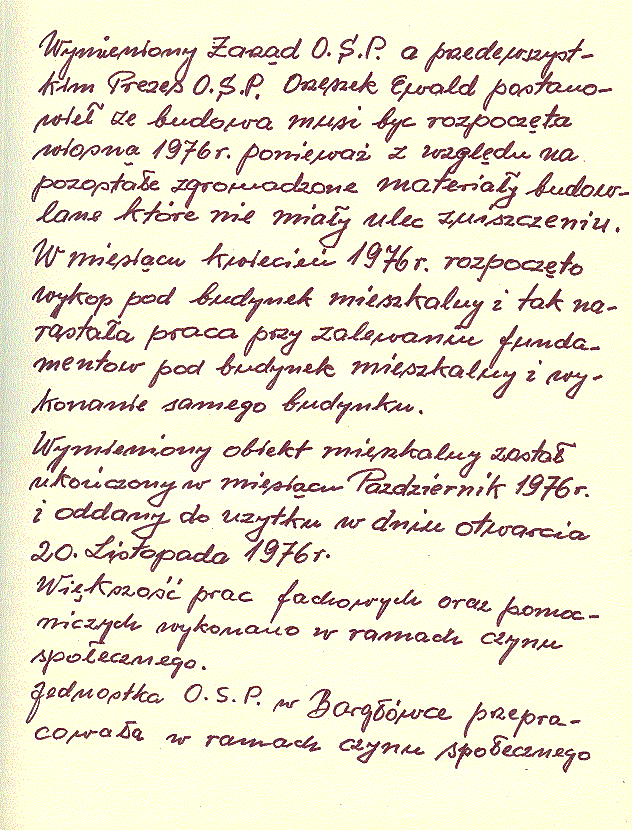 Wymieniony Zarząd O.S.P. a przedewszyst-
kim Prezes O.S.P. Orzeszek Ewald postano-
wieł ze budowa musi byc rozpoczęta
wiosną 1976 r. ponieważ z względu na
pozostałe zgromadzone materiały budow-
lane które nie miały ulec zniszczeniu.
W miesiącu kwiecień 1976 r. rozpoczęto
wykop pod budynek mieszkalny i tak na-
rastała praca przy zalewaniu funda-
mentow pod budynek mieszkalny i wy-
konanie samego budynku.
Wymieniony obiekt mieszkalny zastał
ukończony w miesiącu Pazdziernik 1976 r.
i oddany do uzytku w dniu otwarcia
20. Listopada 1976 r.
Większość prac fachowych oraz pomoc-
niczych wykonano w ramach czynu
społecznego.
Jednostka O.S.P. w Bargłówce przepra-
cowała w ramach czynu społecznego